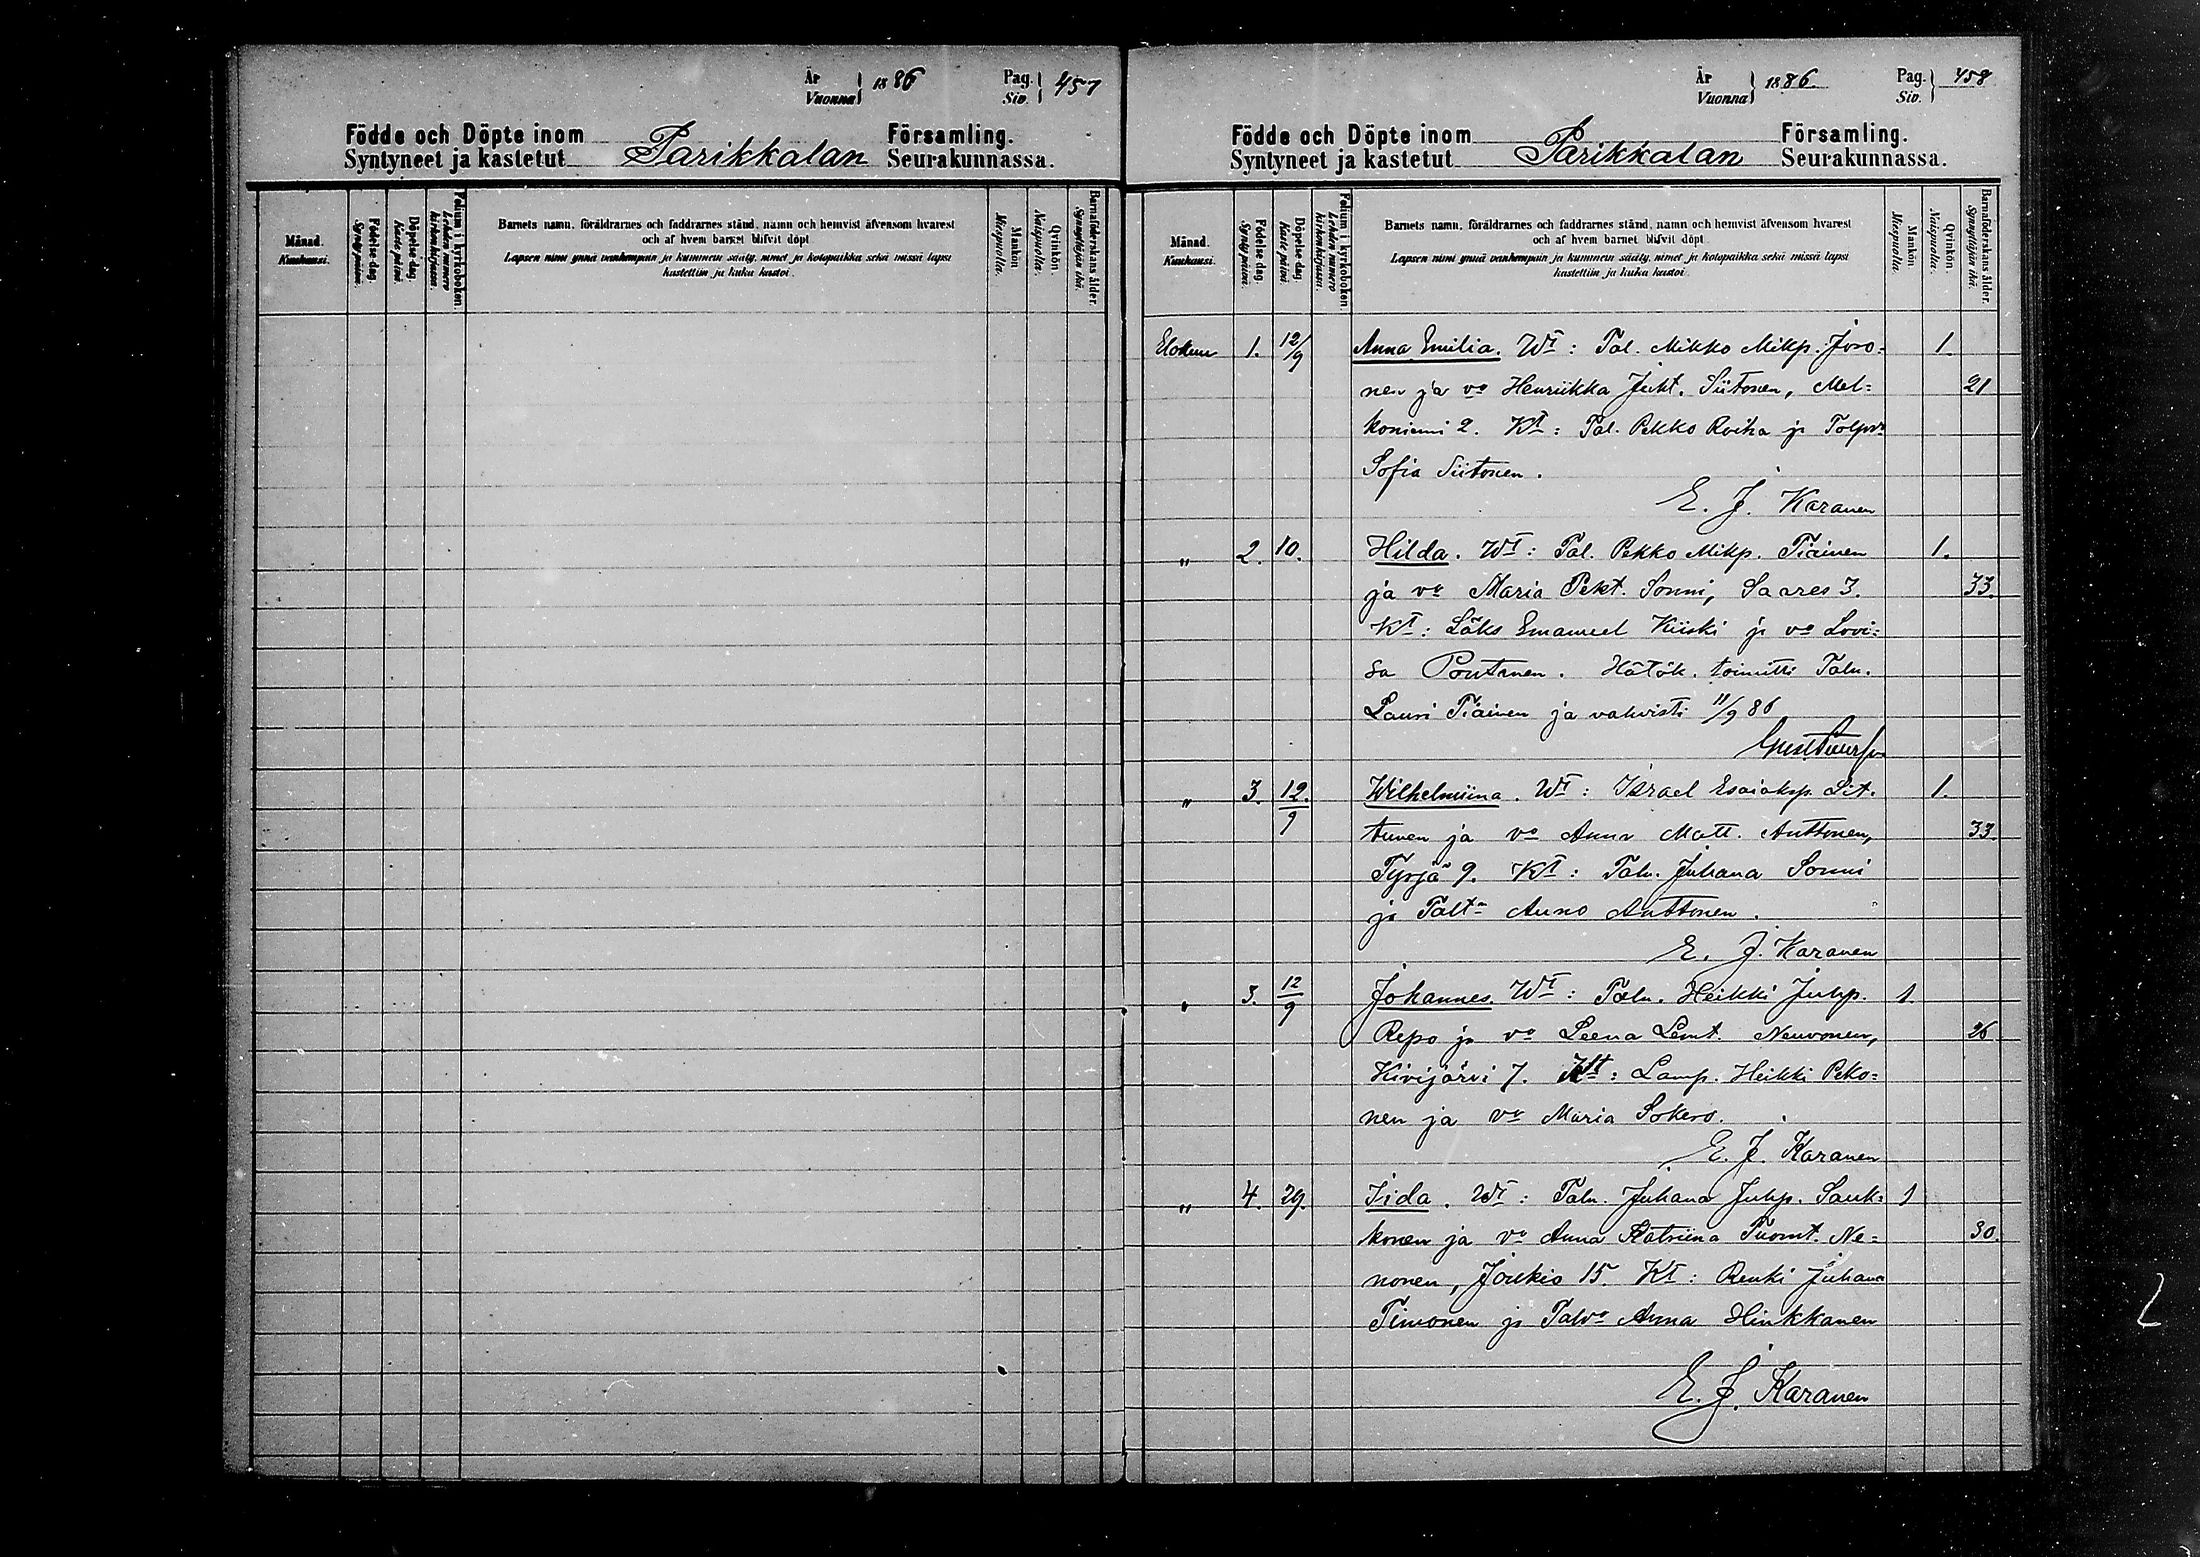 År Vuonna 1886 Pag. Siv. 457
Födde och Döpte inom Församling.
Syntyneet ja kastetut Parikkalan Seurakunnassa.
Månad. Kuukausi.
Födelse dag. Syntypäivä.
Döpelse dag. Kastepäivä.
Folium i kyrkoboken. Lehden numero kirkonkirjassa.
Barnets namn, föräldrarnes och faddrarnes stånd, namn och hemvist äfvensom hvarest
och af hvem barnet blifvit döpt.
Lapsen nimi ynnä vanhempain ja kummein sääty, nimet ja kotopaikka sekä missä lapsi
kastettiin ja kuka kastoi.
Mankön Miespuolia.
Qvinkön. Naispuolia.
Barnaföderskans ålder. Synnyttäjän ikä.
År Vuonna 1886. Pag. Siv. 458
Födde och Döpte inom Församling.
Syntyneet ja kastetut Parikkalan Seurakunnassa.
Månad. Kuukausi.
Födelse dag. Syntypäivä.
Döpelse dag. Kastepäivä.
Folium i kyrkoboken. Lehden numero kirkonkirjassa.
Barnets namn, föräldrarnes och faddrarnes stånd, namn och hemvist äfvensom hvarest
och af hvem barnet blifvit döpt.
Lapsen nimi ynnä vanhempain ja kummein sääty, nimet ja kotopaikka sekä missä lapsi
kastettiin ja kuka kastoi.
Mankön Miespuolia.
Qvinkön. Naispuolia.
Barnaföderskans ålder. Synnyttäjän ikä.
Elokuu 1. 12/9 Anna Emilia. Wt: Tal. Mikko Mikp. Joro= 1.
nen ja vo Henriikka Juht. Siitonen, Mel= 21
koniemi 2. Kt: Tal. Pekko Roiha ja
Sofia Siitonen.
E. J. Karanen
" 2. 10. Hilda. Wt: Tal. Pekko Mikp. Tiainen 1.
ja vo Maria Pekt. Sonni, Saares 3. 33.
Kt: Läks Emanuel Kiiski ja vo Lovi=
sa Pontinen. Hätäk. toimitti Taln.
Lauri Tiainen ja vahvisti 11/9 86
" 3. 12./9 Wilhelmiina. Wt: Israel Esaiaksp. Sit= 1.
tunen ja vo Anna Matt. Anttonen, 33.
Tyrjä 9. Kt: Taln. Juhana Sonni
ja Anttonen.
E. J. Karanen
" 3. 12/9 Johannes. Wt: Taln. Heikki Juhp. 1
Repo ja vo Leena Neuvonen, 26
Kivijärvi 7. Kt: Lamp. Heikki Peko=
nen ja vo Maria Sokero.
E. J. Karanen
" 4. 29. Iida. Wt: Taln. Juhana Juhp. Sauk= 1
konen ja vo Anna Katriina Tuomt. Ne= 30.
nonen, Joukio 15. Kt: Renki Juhana
Timonen ja Anna Hinkkanen
E. J. Karanen